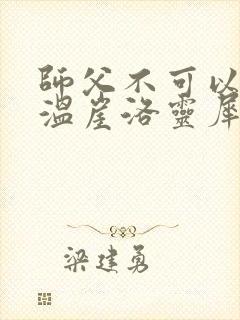 師父不可以
溫崖洛靈犀
梁建勇